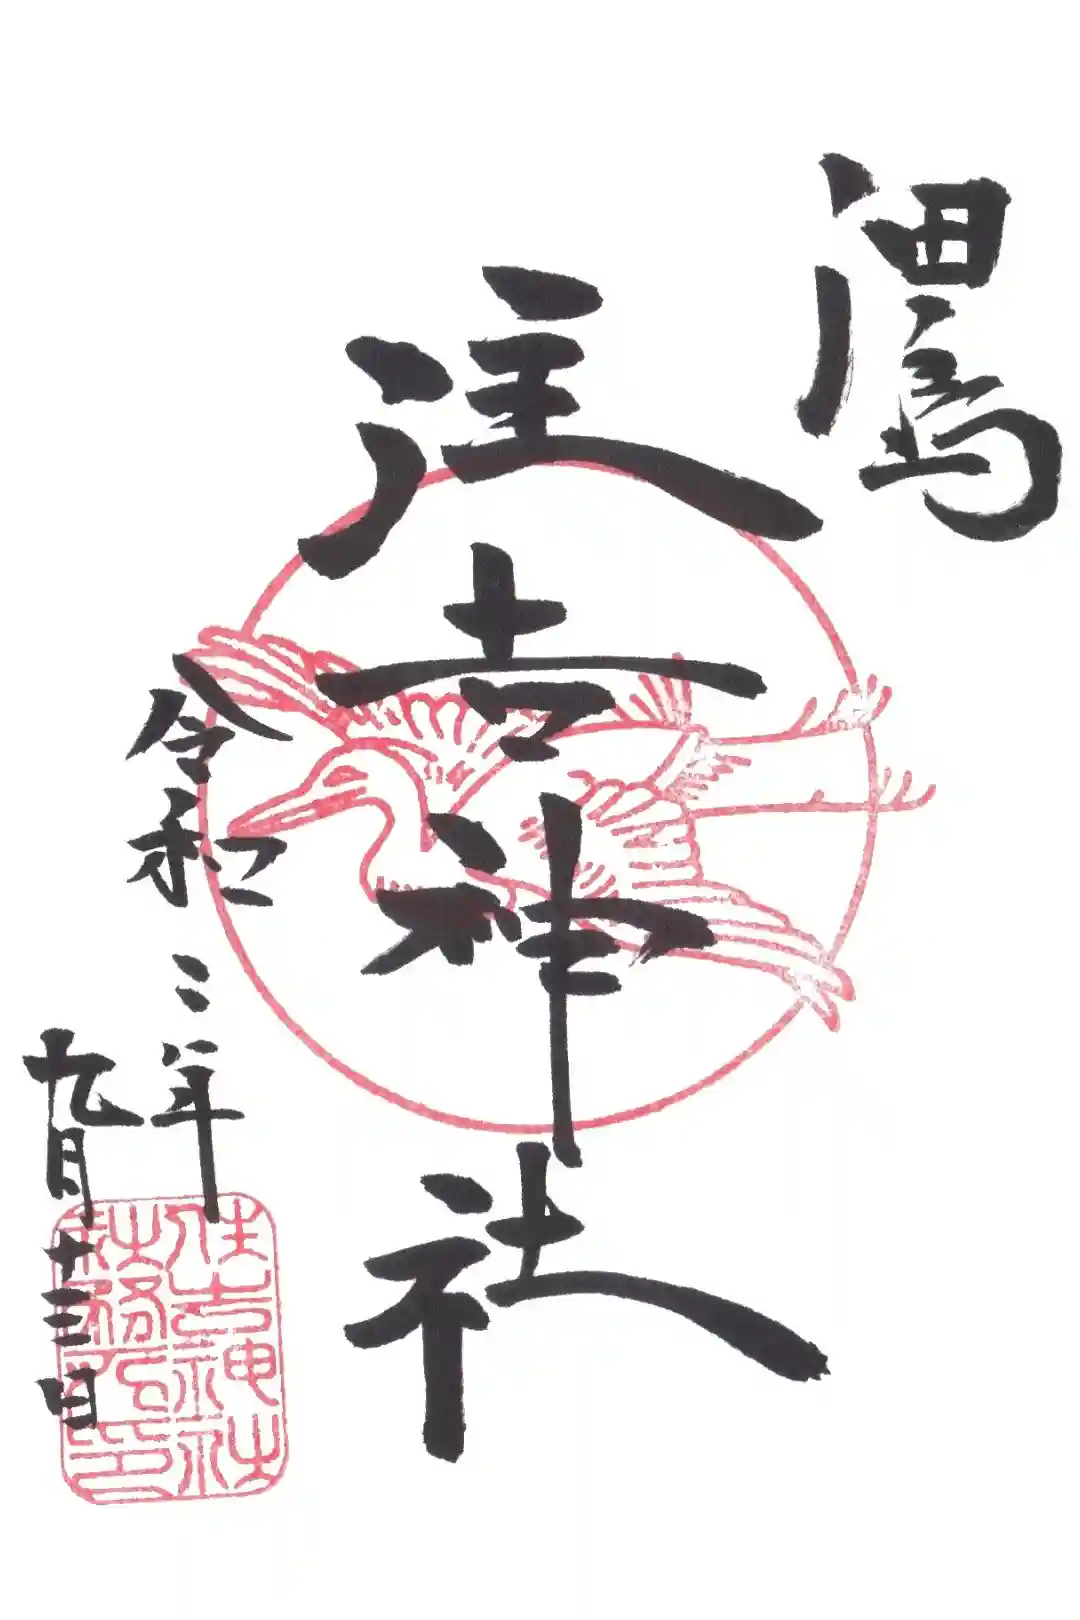 住吉神社
令和二年
九月十三日
住吉神社
社務所印